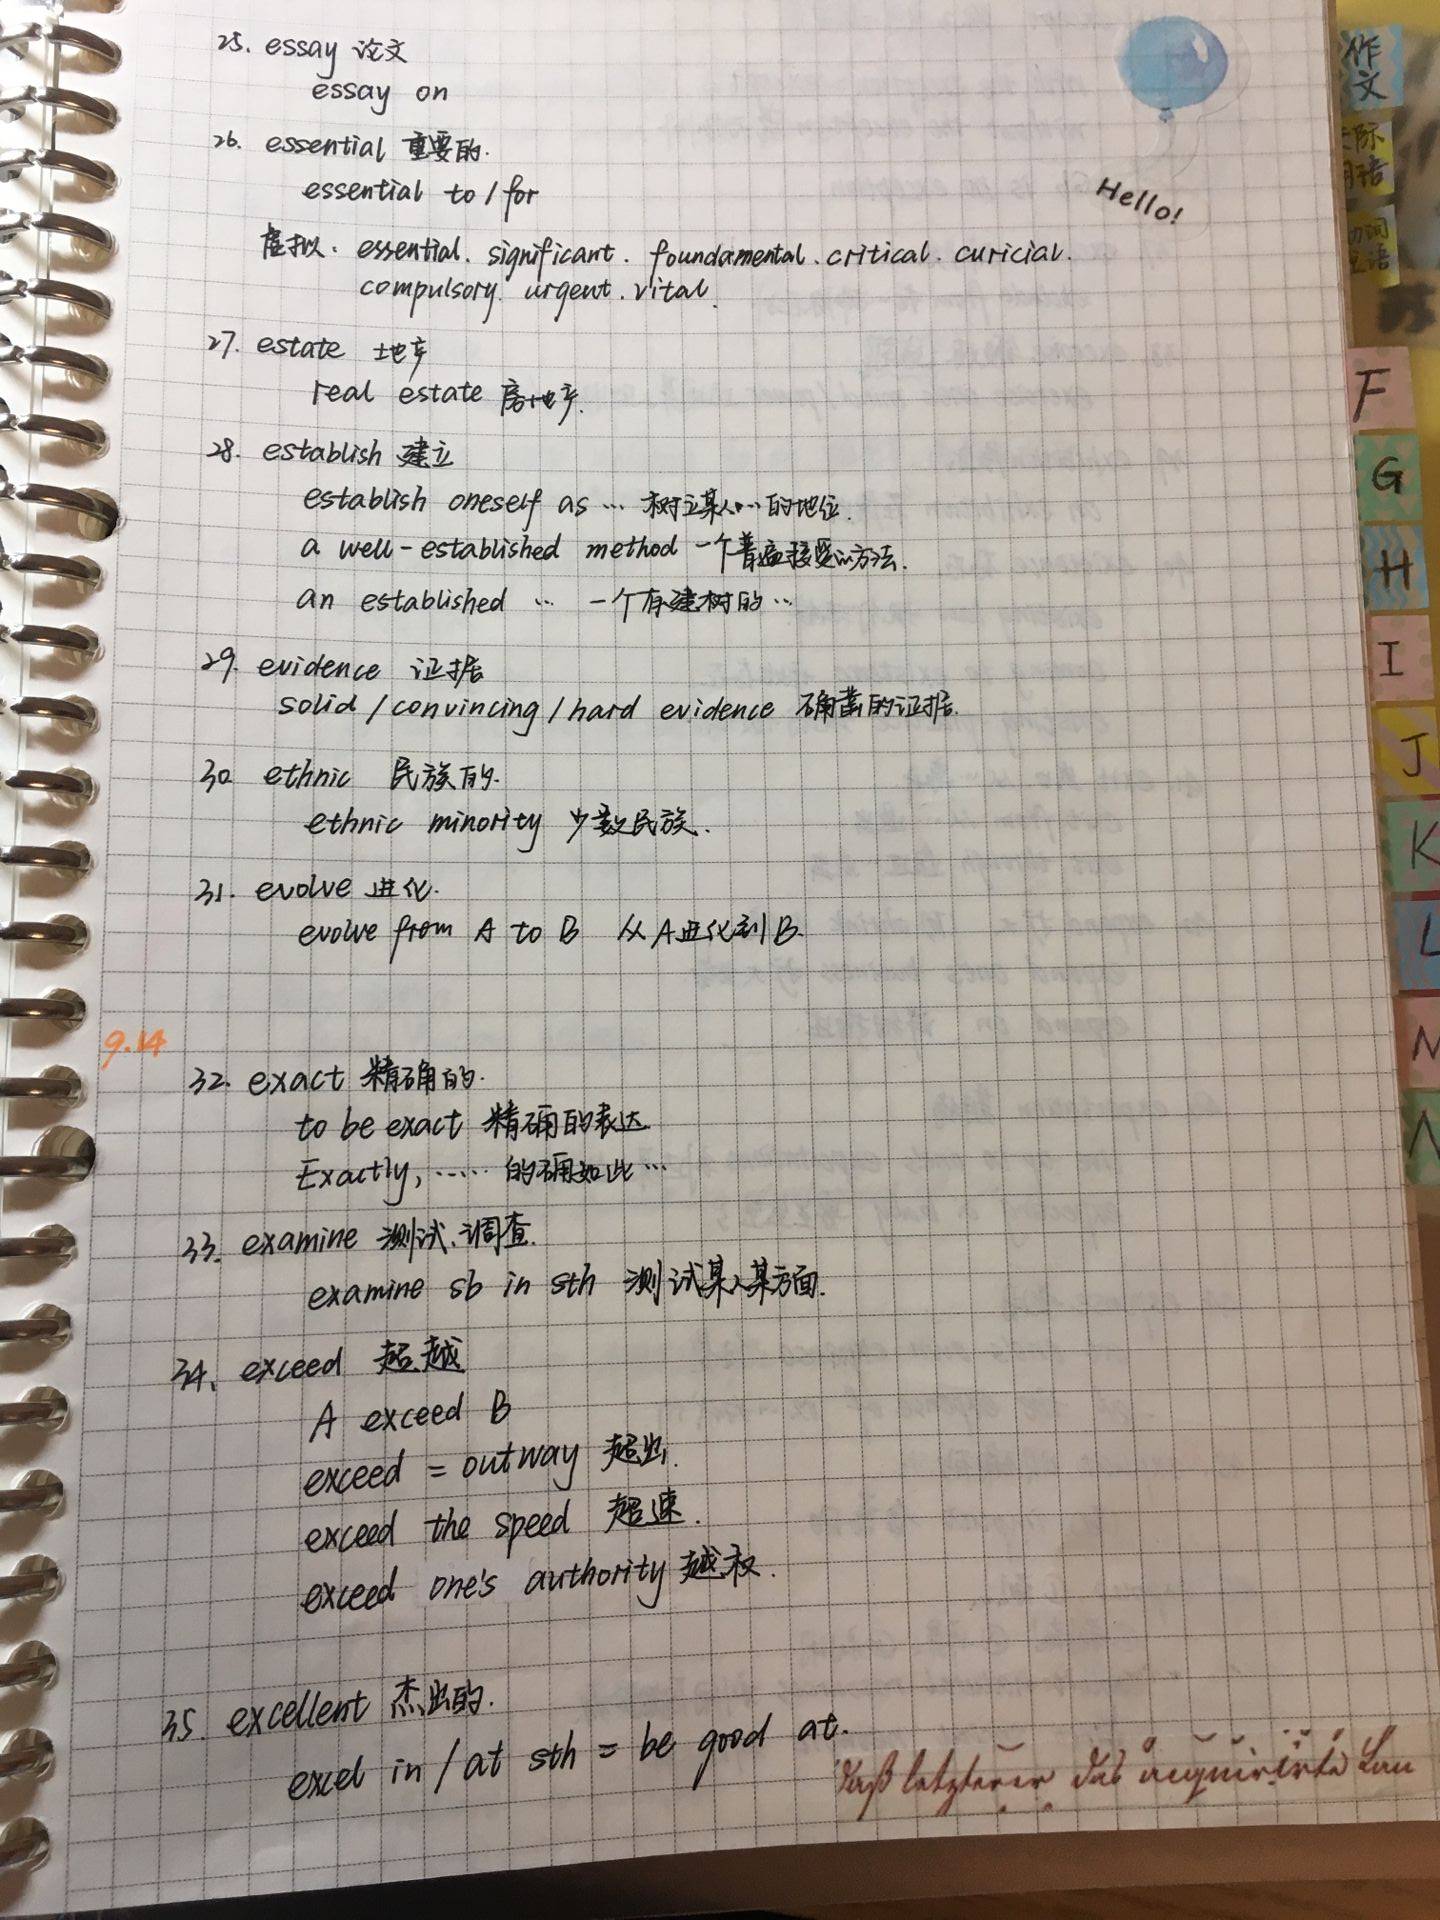 25. essay 论文
essay on
26. essential 重要的.
essential to / for
虚拟. essential. significant. foundamental. critical. curicial.
compulsory. urgent. vital.
27. estate 地产
real estate 房地产.
28. establish 建立
establish oneself as … 树立某人…的地位.
a well-established method 一个普遍接受的方法.
an established … 一个有建树的…
29. evidence 证据
solid / convincing / hard evidence 确凿的证据.
30 ethnic 民族的.
ethnic minority 少数民族.
31. evolve 进化.
evolve from A to B 从A进化到B.
9.14
32. exact 精确的.
to be exact 精确的表达
Exactly, …… 的确如此…
33. examine 测试、调查.
examine sb in sth 测试某人某方面.
34. exceed 超越
A exceed B
exceed = outway 超出.
exceed the speed 超速.
exceed one's authority 越权.
35. excellent 杰出的.
excel in / at sth = be good at.
Hello!
daß letzterer das acquirirte Lau
作文
F
G
H
I
J
K
L